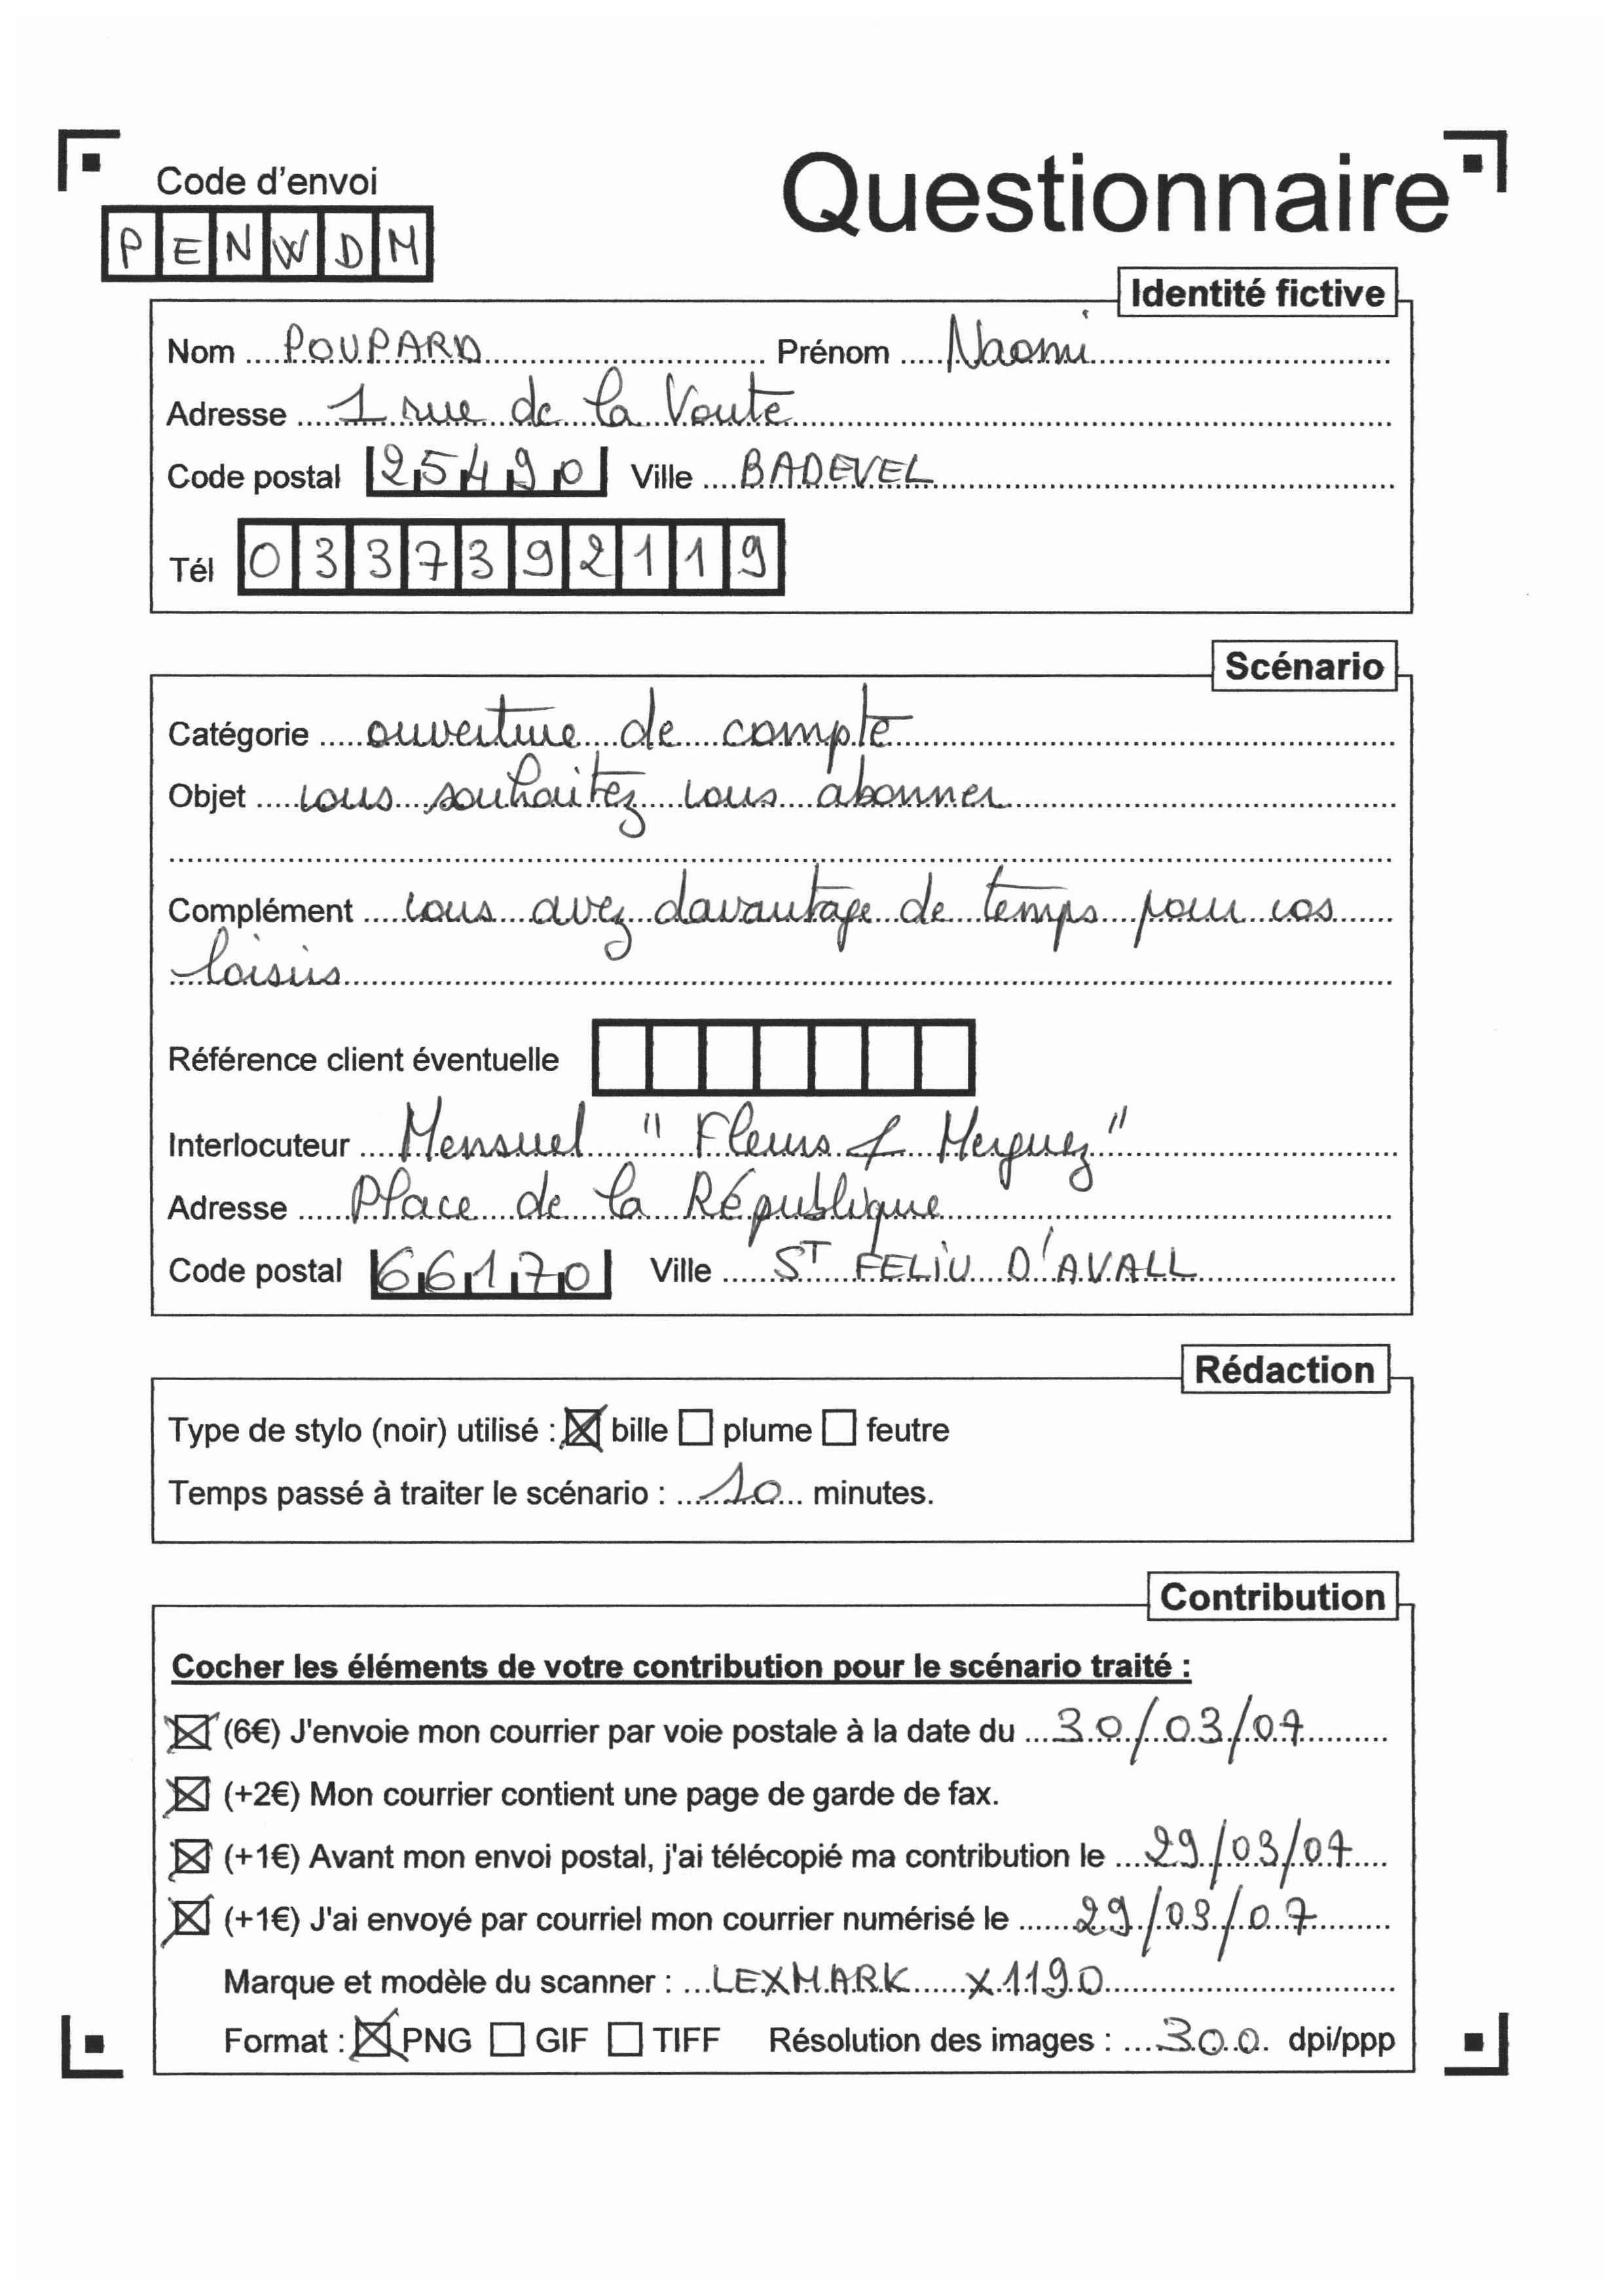 Questionnaire
Code d'envoi
PENWDM
Identité fictive
Nom POUPARD Prénom Naomi
Adresse 1 rue de la Voute
Code postal 25490 Ville BADEVEL
Tél 0337392119
Scénario
Catégorie ouverture de compte
Objet vous souhaitez vous abonner
Complément vous avez davantage de temps pour vos
loisirs
Référence client éventuelle
Interlocuteur Mensuel "Fleurs & Merguez"
Adresse Place de la République
Code postal 66170 Ville ST FELIU D'AVALL
Rédaction
Type de stylo (noir) utilisé : ☒ bille ☐ plume ☐ feutre
Temps passé à traiter le scénario : 10 minutes.
Contribution
Cocher les éléments de votre contribution pour le scénario traité :
☒ (6€) J'envoie mon courrier par voie postale à la date du 30/03/07
☒ (+2€) Mon courrier contient une page de garde de fax.
☒ (+1€) Avant mon envoi postal, j'ai télécopié ma contribution le 29/03/07
☒ (+1€) J'ai envoyé par courriel mon courrier numérisé le 29/03/07
Marque et modèle du scanner : LEXMARK X1190
Format : ☒ PNG ☐ GIF ☐ TIFF Résolution des images : 300 dpi/ppp